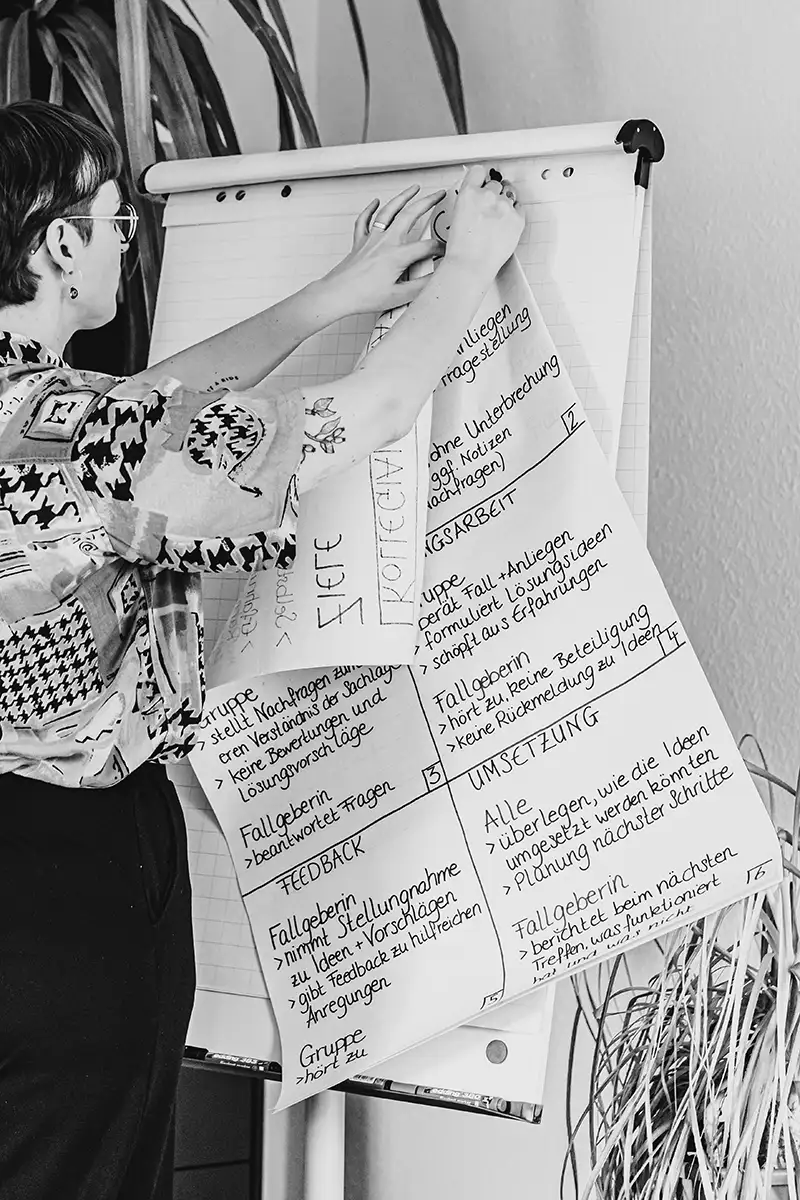 nliegen
ragestellung
ohne Unterbrechung
ggf. Notizen
achfragen)
2
NGSARBEIT
uppe
berät Fall + Anliegen
> formuliert Lösungsideen
> schöpft aus Erfahrungen
Fallgeberin
> hört zu, keine Beteiligung
> keine Rückmeldung zu Ideen
4
ZIELE
KOLLEGIA
Gruppe
> stellt Nachfragen zum
eren Verständnis der Sachlage
> keine Bewertungen und
Lösungsvorschläge
Fallgeberin
> beantwortet Fragen
3
FEEDBACK
Fallgeberin
> nimmt Stellungnahme
zu Ideen + Vorschlägen
> gibt Feedback zu hilfreichen
Anregungen
Gruppe
> hört zu
5
UMSETZUNG
Alle
> überlegen, wie die Ideen
umgesetzt werden könnten
> Planung nächster Schritte
Fallgeberin
> berichtet beim nächsten
Treffen, was funktioniert
hat und was nicht
6
edding 383
edding 383